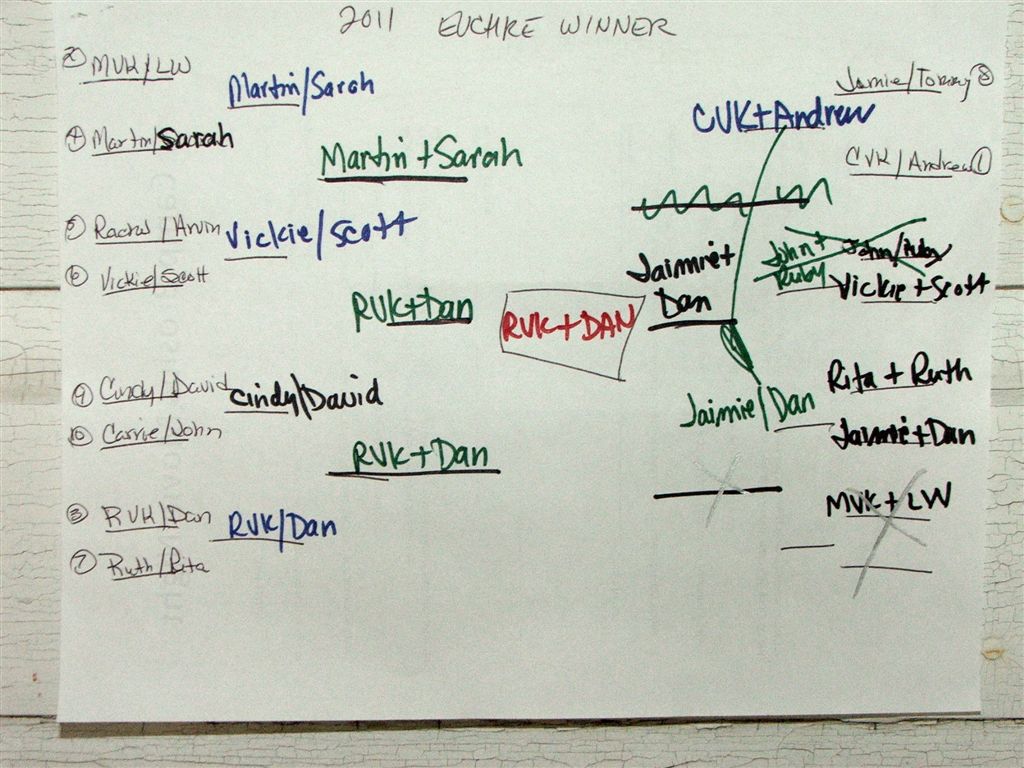 2011 EUCHRE WINNER
② MVK/LW
Martin/Sarah
④ Martin/Sarah
Martin + Sarah
⑤ Rachel/Arvin
Vickie/Scott
⑥ Vickie/Scott
RVK+Dan
RVK+DAN
⑨ Cindy/David
Cindy/David
⑩ Carrie/John
RVK+Dan
③ RVK/Dan
RVK/Dan
⑦ Ruth/Rita
Jamie/Tommy ⑧
CVK+Andrew
CVK/Andrew ①
Jaimie+
Dan
John+
Ruby
John/Ruby
Vickie+Scott
Rita + Ruth
Jaimie/Dan
Jaimie+Dan
MVK+LW